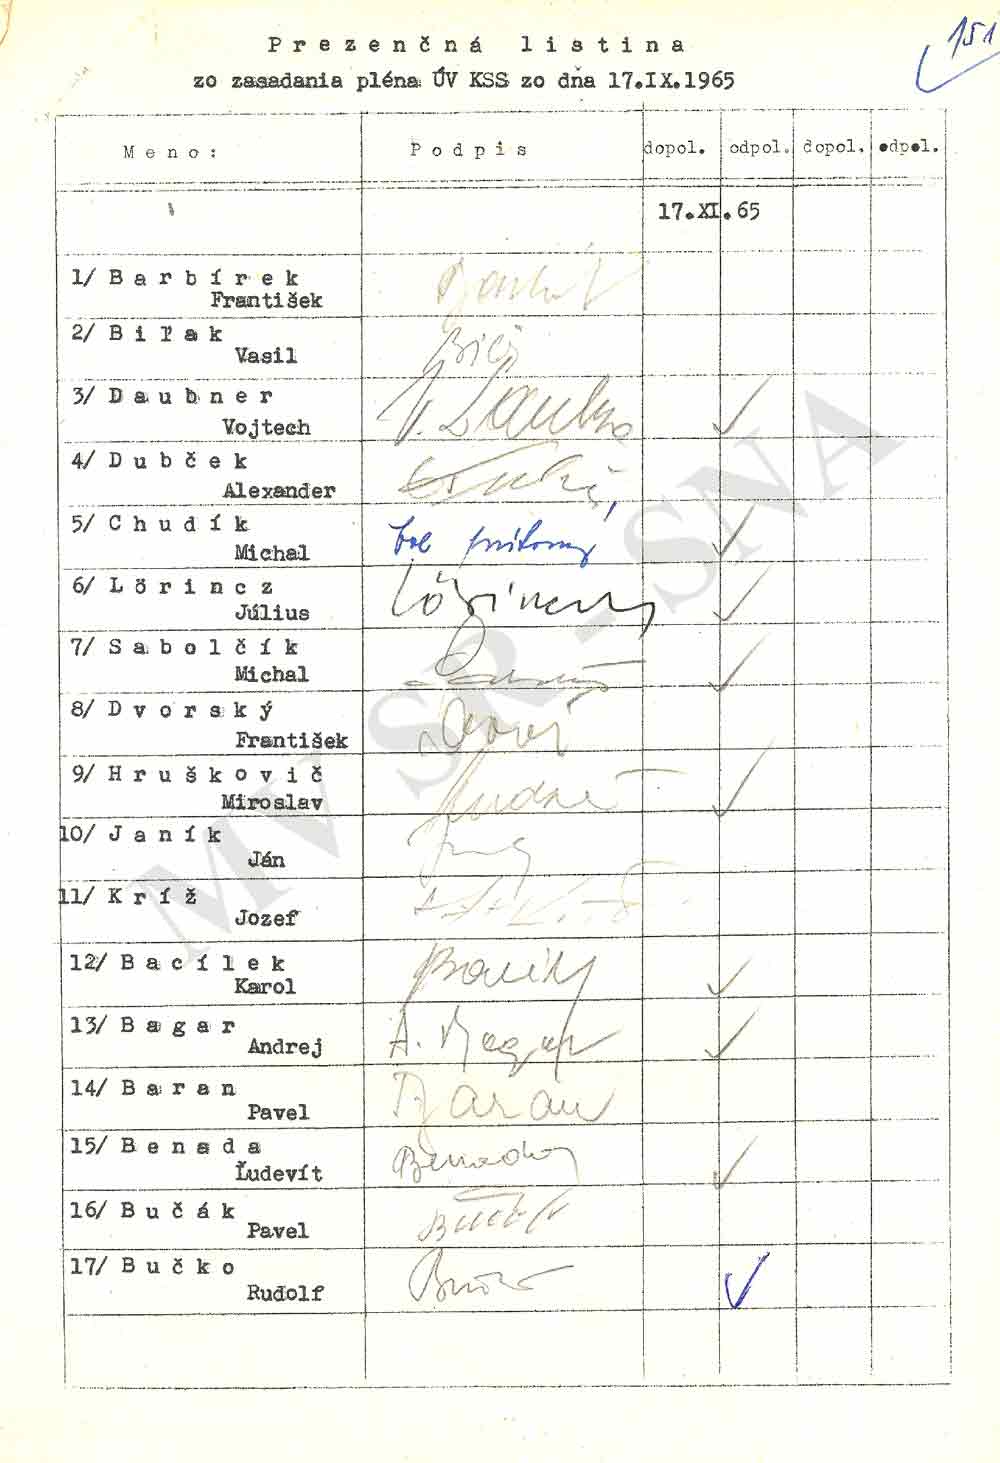 151
Prezenčná listina
zo zasadania pléna ÚV KSS zo dňa 17.IX.1965
Meno: Podpis dopol. odpol. dopol. odpol.
17.XI.65
1/ Barbírek
František
2/ Biľak
Vasil
3/ Daubner V. Daubner
Vojtech
4/ Dubček
Alexander
5/ Chudík bol prítomný
Michal
6/ Lörincz Lörincz
Július
7/ Sabolčík
Michal
8/ Dvorský
František
9/ Hruškovič
Miroslav
10/ Janík
Ján
11/ Kríž
Jozef
12/ Bacílek
Karol
13/ Bagar A. Bagar
Andrej
14/ Baran Baran
Pavel
15/ Benada Benada
Ľudevít
16/ Bučák
Pavel
17/ Bučko
Rudolf
MV SR - SNA